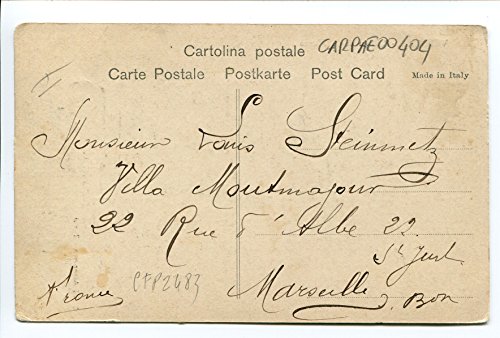 Cartolina postale CARPAE00404
Carte Postale Postkarte Post Card Made in Italy
Monsieur Louis Steinmetz
Villa Montmajour
22 Rue d'Albe 22
St Just
Marseille
France
CFP2483